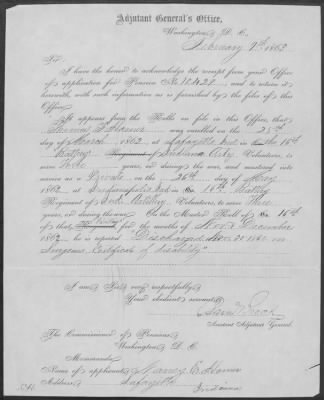 Adjutant General's Office,
Washington, D. C.
February 7th, 1863
Sir:
I have the honor to acknowledge the receipt from your Office
of application for Pension No. and to return it
herewith, with such information as is furnished by the files of this
Office.
It appears from the Rolls on file in this Office, that
was enrolled on the 25th
day of March 1862 at Lafayette Ind in the 16th
Battery Regiment of Indiana Arty Volunteers, to
serve years, or during the war, and mustered into
service as a Private on the 26th day of May
1862 at Indianapolis Ind in 16th Battery
Regiment of Ind. Artillery Volunteers, to serve Three
years, or during the war. On the Muster Roll of 16th
of that for the months of Nov & December
1862 he is reported "Discharged Nov 21 1862 on
Surgeons Certificate of Disability"
I am Sir, very respectfully,
Your obedient servant,
Assistant Adjutant General.
The Commissioner of Pensions
Washington D. C.
Memoranda
Name of applicant, Nancy E.
Address Lafayette
Indiana